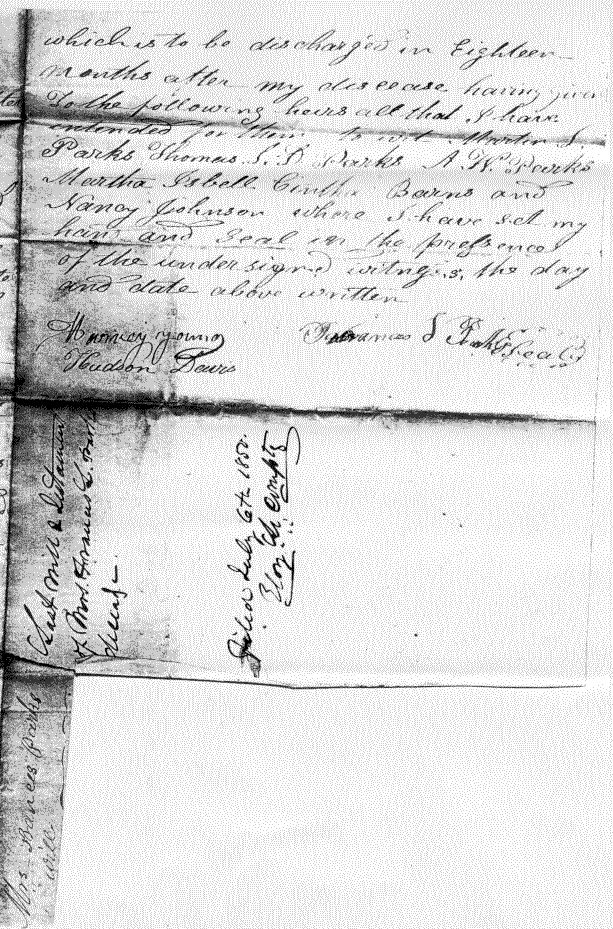 which is to be discharged in Eighteen
months after my discease having given
To the following heirs all that I have
intended for them to wit Martin S.
Parks Thomas S. D Parks A. W. Parks
Martha Isbell Cintha Barns and
Nancy Johnson where I have set my
han and Seal in the pressence
of the undersigned witness, the day
and date above written
young Frances S Parks Seal
Hudson Davis
Last Will & Testament
of Mrs. Frances S. Parks
Filed July 6th 1850.
Mrs Frances Parks
will